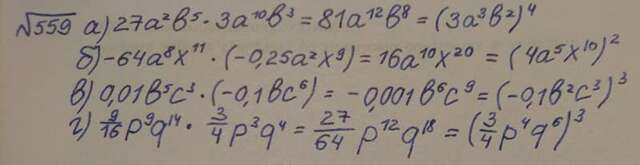 √559 а) 27a²b⁵ · 3a¹⁰b³ = 81a¹²b⁸ = (3a³b²)⁴
б) -64a⁸x¹¹ · (-0,25a²x⁹) = 16a¹⁰x²⁰ = (4a⁵x¹⁰)²
в) 0,01b⁵c³ · (-0,1bc⁶) = -0,001b⁶c⁹ = (-0,1b²c³)³
г) 9/16 p⁹q¹⁴ · 3/4 p³q⁴ = 27/64 p¹²q¹⁸ = (3/4 p⁴q⁶)³